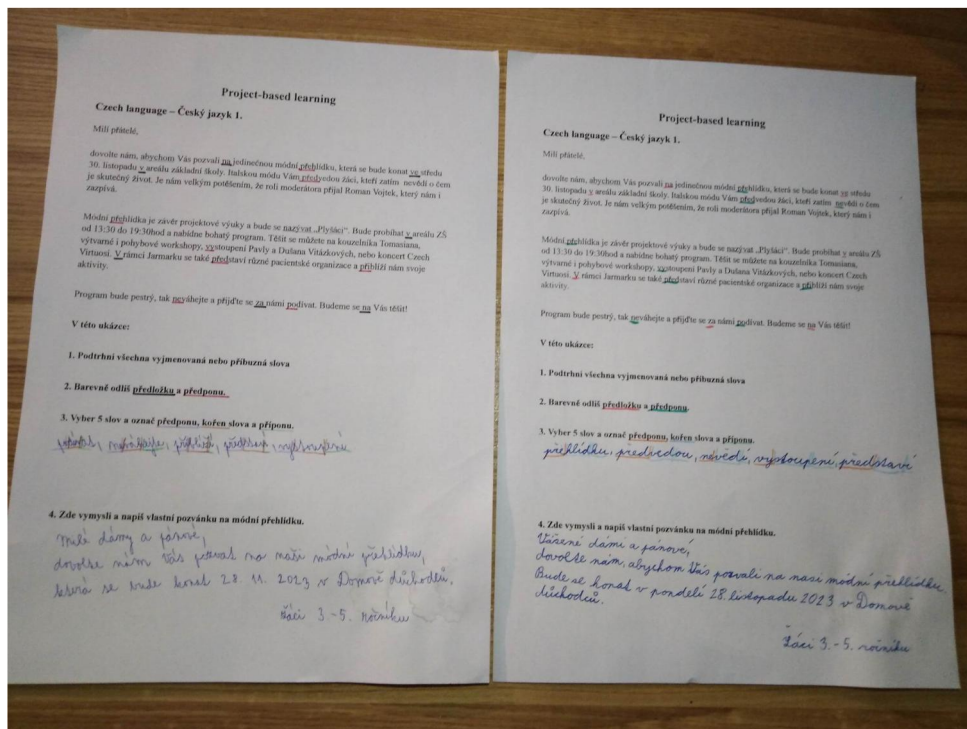 Project-based learning
Czech language – Český jazyk 1.
Milí přátelé,
dovolte nám, abychom Vás pozvali na jedinečnou módní přehlídku, která se bude konat ve středu
30. listopadu v areálu základní školy. Italskou módu Vám předvedou žáci, kteří zatím nevědí o čem
je skutečný život. Je nám velkým potěšením, že roli moderátora přijal Roman Vojtek, který nám i
zazpívá.
Módní přehlídka je závěr projektové výuky a bude se nazývat „Plyšáci". Bude probíhat v areálu ZŠ
od 13:30 do 19:30hod a nabídne bohatý program. Těšit se můžete na kouzelníka Tomasiana,
výtvarné i pohybové workshopy, vystoupení Pavly a Dušana Vitázkových, nebo koncert Czech
Virtuosi. V rámci Jarmarku se také představí různé pacientské organizace a přiblíží nám svoje
aktivity.
Program bude pestrý, tak neváhejte a přijďte se za námi podívat. Budeme se na Vás těšit!
V této ukázce:
1. Podtrhni všechna vyjmenovaná nebo příbuzná slova
2. Barevně odliš předložku a předponu.
3. Vyber 5 slov a označ předponu, kořen slova a příponu.
4. Zde vymysli a napiš vlastní pozvánku na módní přehlídku.
Milé dámy a pánové,
dovolte nám Vás pozvat na naši módní přehlídku,
která se bude konat 28. 11. 2023 v Domově důchodců.
Žáci 3.-5. ročníku
Project-based learning
Czech language – Český jazyk 1.
Milí přátelé,
dovolte nám, abychom Vás pozvali na jedinečnou módní přehlídku, která se bude konat ve středu
30. listopadu v areálu základní školy. Italskou módu Vám předvedou žáci, kteří zatím nevědí o čem
je skutečný život. Je nám velkým potěšením, že roli moderátora přijal Roman Vojtek, který nám i
zazpívá.
Módní přehlídka je závěr projektové výuky a bude se nazývat „Plyšáci". Bude probíhat v areálu ZŠ
od 13:30 do 19:30hod a nabídne bohatý program. Těšit se můžete na kouzelníka Tomasiana,
výtvarné i pohybové workshopy, vystoupení Pavly a Dušana Vitázkových, nebo koncert Czech
Virtuosi. V rámci Jarmarku se také představí různé pacientské organizace a přiblíží nám svoje
aktivity.
Program bude pestrý, tak neváhejte a přijďte se za námi podívat. Budeme se na Vás těšit!
V této ukázce:
1. Podtrhni všechna vyjmenovaná nebo příbuzná slova
2. Barevně odliš předložku a předponu.
3. Vyber 5 slov a označ předponu, kořen slova a příponu.
přehlídku, předvedou, nevědí, vystoupení, představí
4. Zde vymysli a napiš vlastní pozvánku na módní přehlídku.
Vážené dámi a pánové,
dovolte nám, abychom Vás pozvali na naši módní přehlídku.
Bude se konat v pondělí 28. listopadu 2023 v Domově
důchodců.
Žáci 3.-5. ročníku